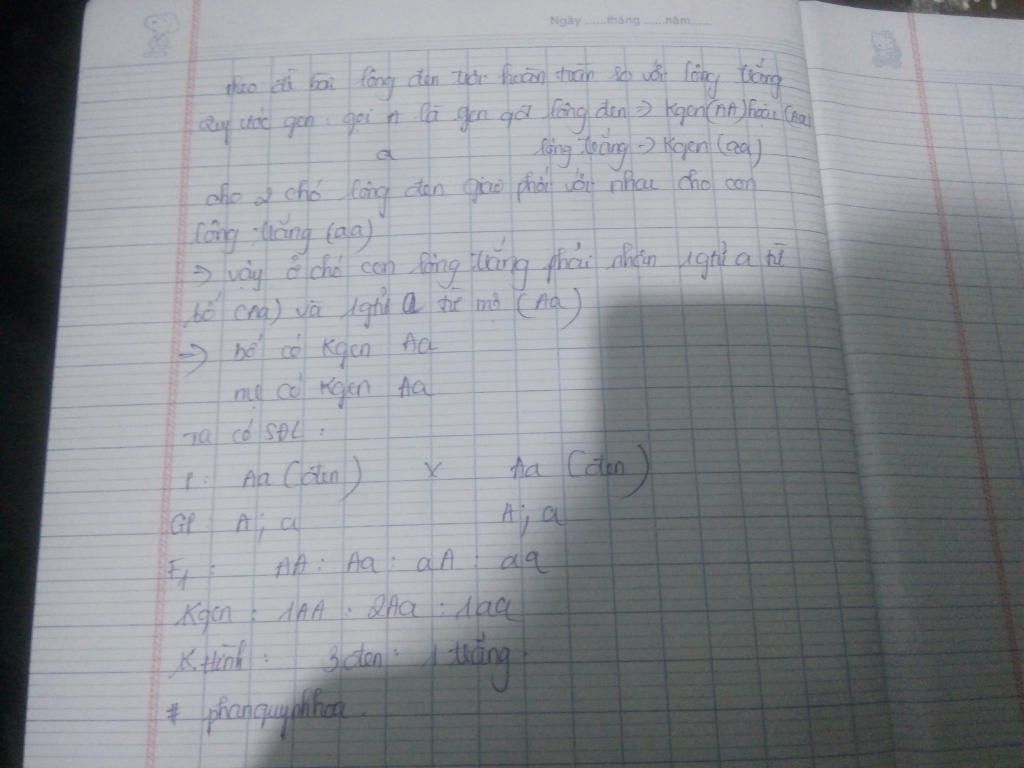 Ngày ......tháng ......năm......
theo đề bài lông đen trội hoàn toàn so với lông trắng
Quy ước gen: gọi A là gen qđ lông đen => Kgen(AA) hoặc (Aa)
a lông trắng -> Kgen (aa)
cho 2 chó lông đen giao phối với nhau cho con
lông trắng (aa)
=> vậy ở chó con lông trắng phải nhận 1 gtử a từ
bố (Aa) và 1 gtử a từ mẹ (Aa)
=> bố có Kgen Aa
mẹ có Kgen Aa
Ta có SĐL:
P: Aa (đen) x Aa (đen)
GP: A; a A; a
F1: AA : Aa : aA : aa
Kgen : 1AA : 2Aa : 1aa
K Hình : 3 đen : 1 trắng
# phanquynhhoa.